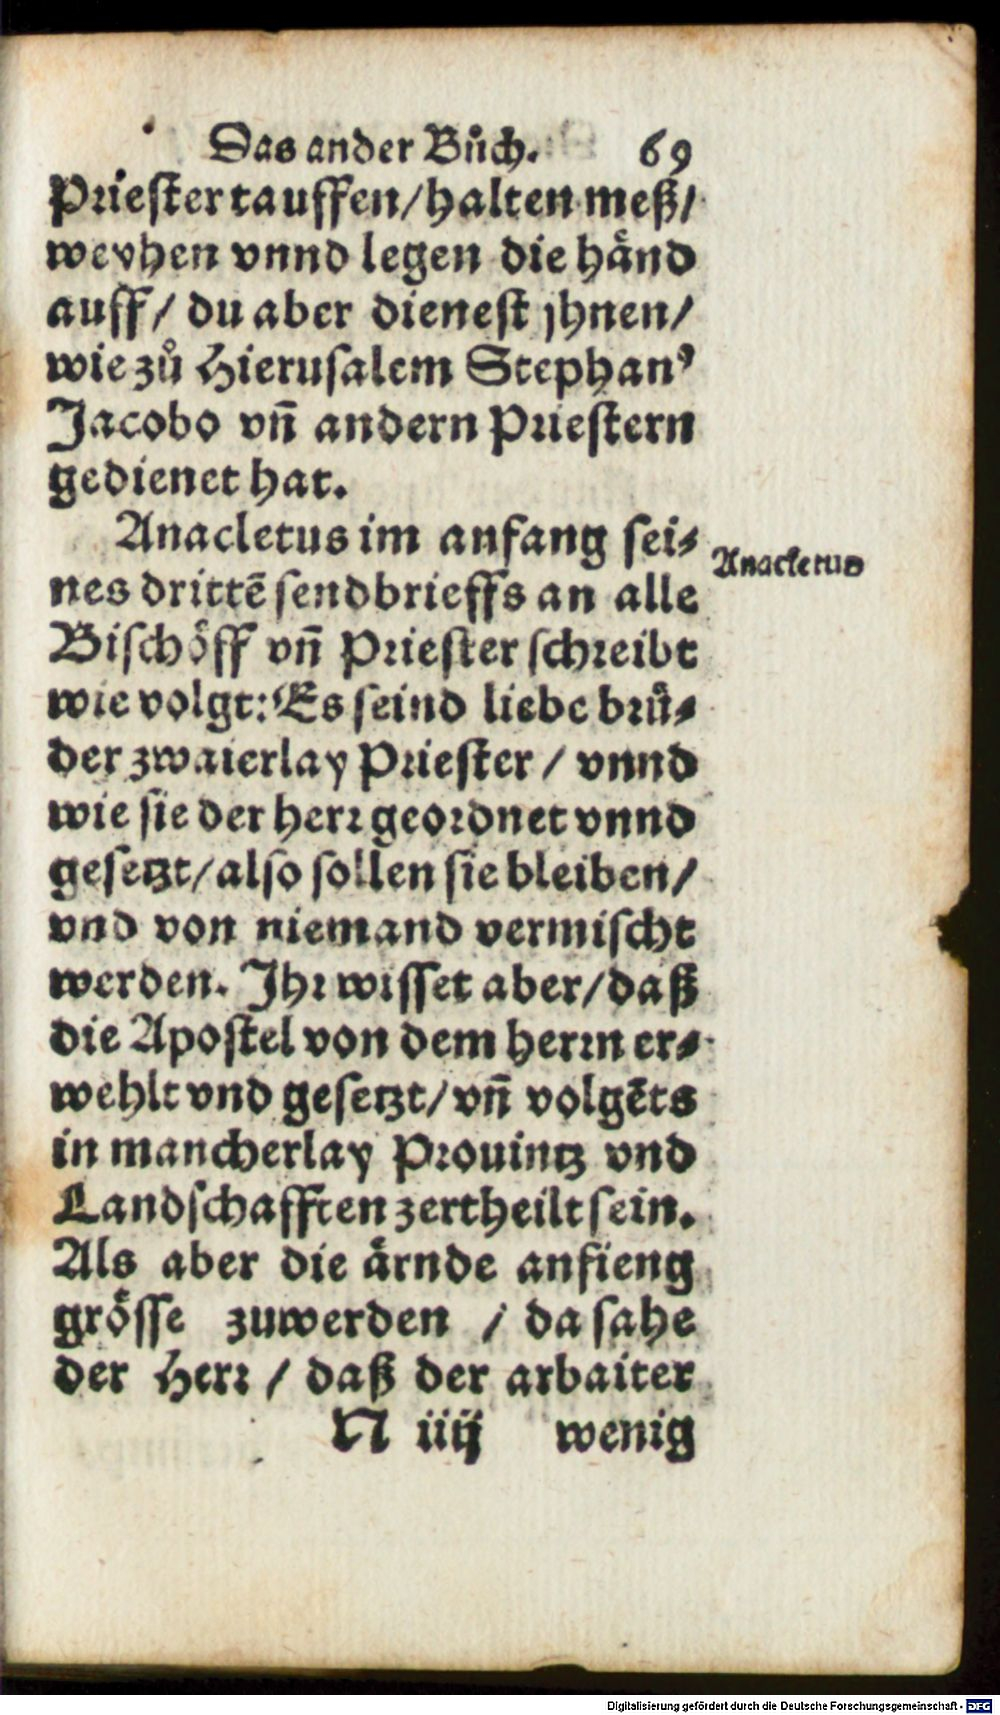 Das ander Bůch. 69
Priester tauffen/ halten meß/
weyhen vnnd legen die händ
auff/ du aber dienest jhnen/
wie zů Hierusalem Stephanꝰ
Jacobo vñ andern Priestern
gedienet hat.
Anacletus im anfang sei⸗
Anacletus
nes drittē sendbrieffs an alle
Bischöff vñ Priester schreibt
wie volgt: Es seind liebe brů⸗
der zwaierlay Priester / vnnd
wie sie der herr geordnet vnnd
gesetzt/ also sollen sie bleiben/
vnd von niemand vermischt
werden. Jhr wisset aber/ daß
die Apostel von dem herrn er⸗
wehlt vnd gesetzt/ vñ volgēts
in mancherlay Prouintz vnd
Landschafften zertheilt sein.
Als aber die ärnde anfieng
grösse zuwerden / da sahe
der Herr / daß der arbaiter
N iiij wenig
Digitalisierung gefördert durch die Deutsche Forschungsgemeinschaft - DFG